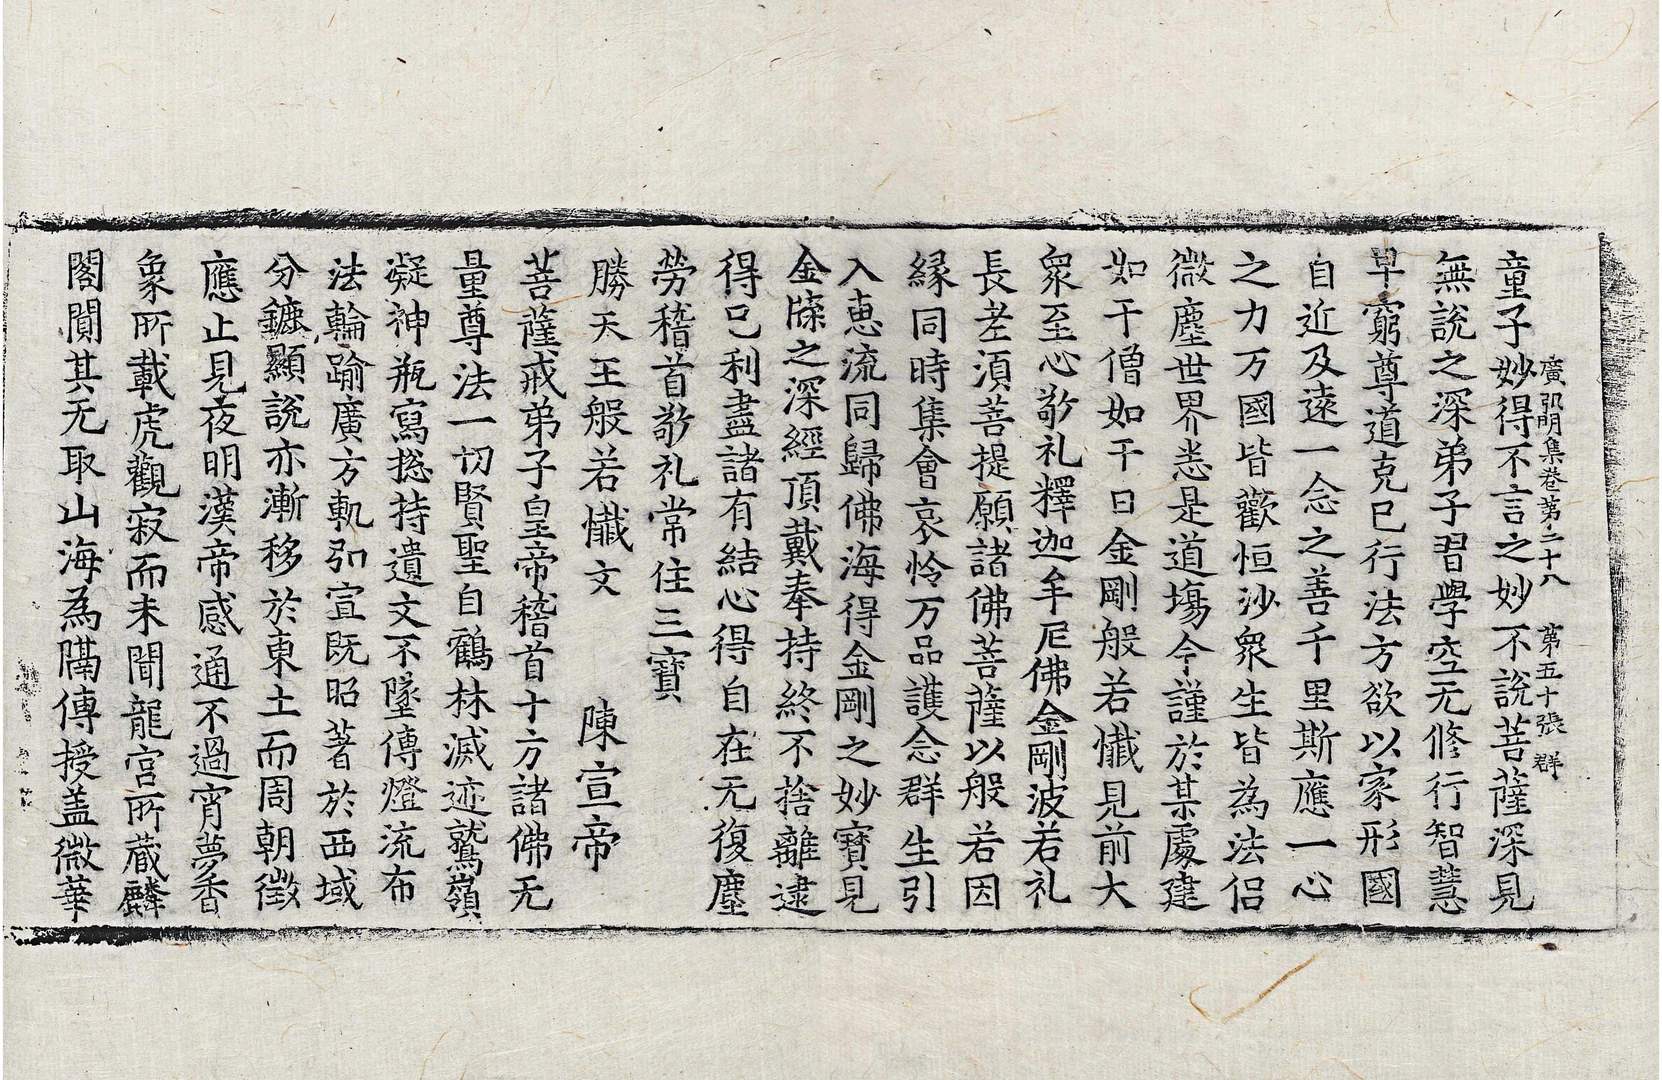 廣弘明集卷第二十八　第五十張　群
童子妙得不言之妙不說菩薩深見
無說之深弟子習學空无修行智慧
早窮尊道克己行法方欲以家形國
自近及遠一念之善千里斯應一心
之力万國皆歡恒沙衆生皆為法侶
微塵世界悉是道場今謹於某處建
如干僧如干日金剛般若懺見前大
衆至心敬礼釋迦牟尼佛金剛波若礼
長老湏菩提願諸佛菩薩以般若因
緣同時集會哀怜万品護念群生引
入恵流同歸佛海得金剛之妙寶見
金牒之深經頂戴奉持終不捨離逮
得己利盡諸有結心得自在无復塵
勞稽首敬礼常住三寶
勝天王般若懺文　陳宣帝
菩薩戒弟子皇帝稽首十方諸佛无
量尊法一切賢聖自鶴林滅迹鷲嶺
凝神瓶寫揔持遺文不墜傳燈流布
法輪踰廣方軌弘宣既昭著於西域
分鑣顯說亦漸移於東土而周朝徵
應止見夜明漢帝感通不過宵夢香
象所載虎觀寂而未聞龍宮所蔵麟
閣閴其无取山海為隔傳授盖微華